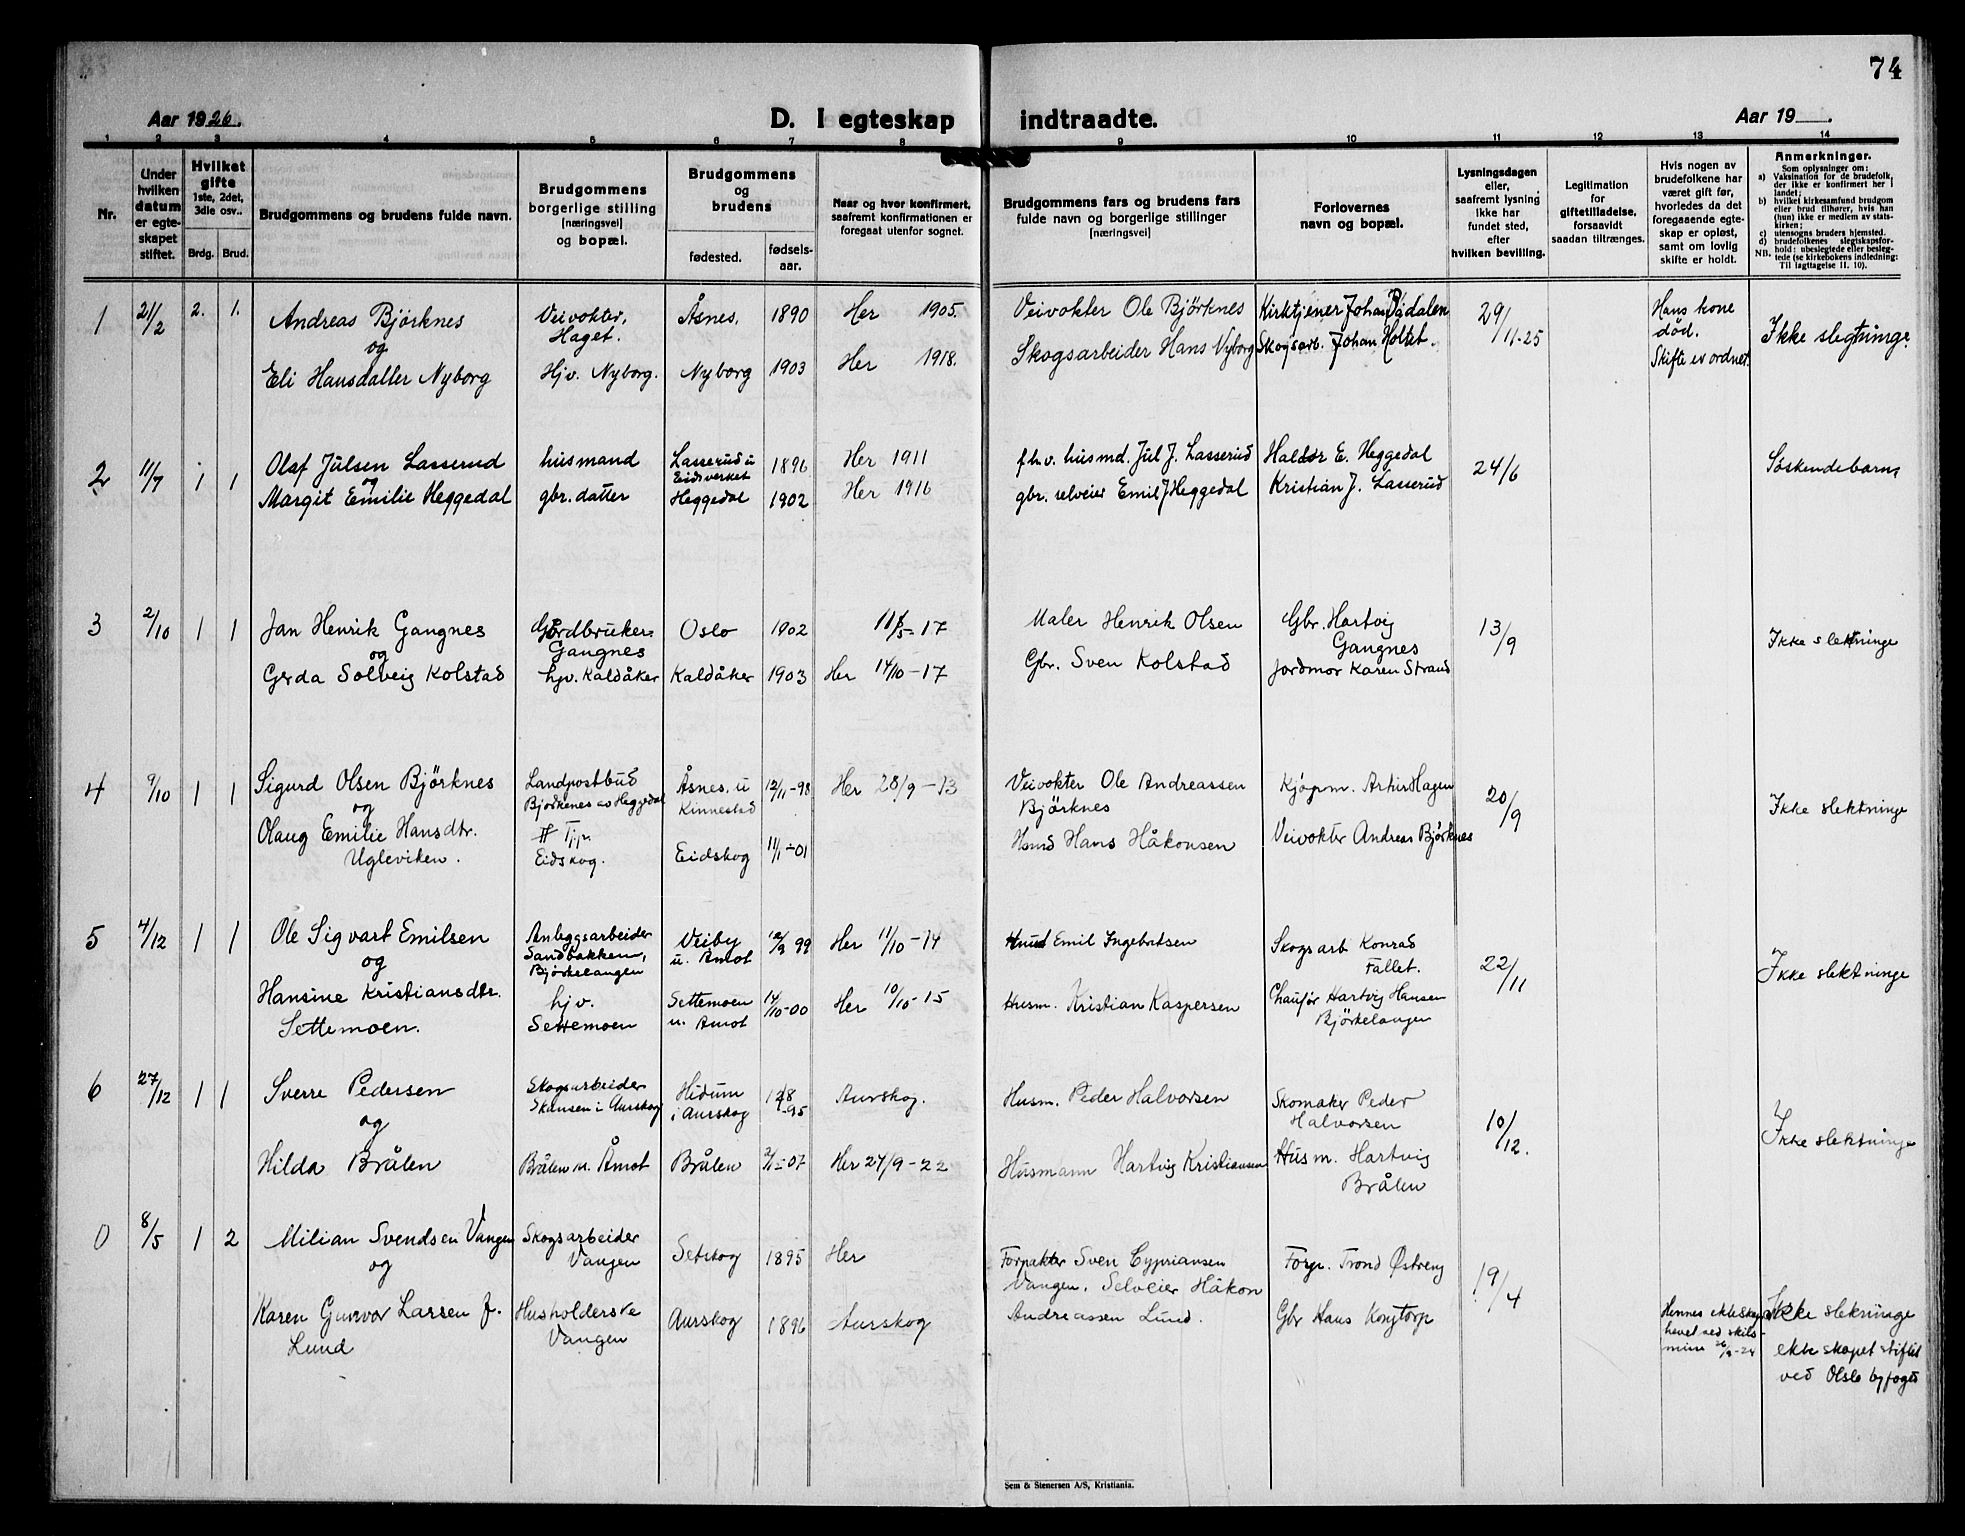 74
Aar 1926.
D. I egteskap indtraadte.
Aar 19 .
1 2 3 4 5 6 7 8 9 10 11 12 13 14
Nr.
Under hvilken datum er egteskapet stiftet.
Hvilket gifte 1ste, 2det, 3die osv..
Brdg. Brud.
Brudgommens og brudens fulde navn.
Brudgommens borgerlige stilling [næringsvei] og bopæl.
Brudgommens og brudens
fødested. fødselsaar.
Naar og hvor konfirmert, saafremt konfirmationen er foregaat utenfor sognet.
Brudgommens fars og brudens fars fulde navn og borgerlige stillinger [næringsvei]
Forlovernes navn og bopæl.
Lysningsdagen eller, saafremt lysning ikke har fundet sted, efter hvilken bevilling.
Legitimation for giftetilladelse, forsaavidt saadan tiltrænges.
Hvis nogen av brudefolkene har været gift før, hvorledes da det foregaaende egteskap er opløst, samt om lovlig skifte er holdt.
Anmerkninger.
Som oplysninger om:
a) Vaksination for de brudefolk, der ikke er konfirmert her i landet;
b) hvilket kirkesamfund brudgom eller brud tilhører, hvis han (hun) ikke er medlem av statskirken;
c) utensogns bruders hjemsted.
d) brudefolkenes slegtskapsforhold: ubeslegtede eller beslegtede (se kirkebokens indledning: Til iagttagelse II. 10).
NB.
1 21/2 2. 1. Andreas Bjørknes Veivokter, Haget. Åsnes. 1890 Her 1905. Veivokter Ole Bjørknes Kirktjener Johan Didalen 29/11-25 Hans kone død. Skifte er ordnet. Ikke slegtninge.
og
Eli Hansdatter Nyborg Hjv. Nyborg. Nyborg 1903 Her 1918. Skogsarbeider Hans Nyborg Skogsarb. Johan Holtet.
2 11/7 1 1 Olaf Julsen Lasserud husmand Lasserud u Eidsverket 1896 Her 1911 fhv. husmd. Jul J. Lasserud Haldor E. Heggedal 24/6 Søskendebarn
og
Margit Emilie Heggedal gbr. datter Heggedal 1902 Her 1916 gbr. selveier Emil J Heggedal Kristian J. Lasserud
3 2/10 1 1 Jan Henrik Gangnes Gårdbruker Gangnes Oslo 1902 11/5-17 Maler Henrik Olsen Gbr. Hartvig Gangnes 13/9 Ikke slektninge
og
Gerda Solveig Kolstad hjv. Kaldåker Kaldåker 1903 Her 14/10-17 Gbr. Sven Kolstad Jordmor Karen Strand
4 9/10 1 1 Sigurd Olsen Bjørknes Landpostbud Bjørkenes av Heggedal Åsnes. u Kinnestad 12/11-98 Her 28/9-13 Veivokter Ole Andreassen Bjørknes Kjøpm. Artur Hagen 20/9 Ikke slektninge
og
Olaug Emilie Hansdtr. Ugleviken. Tjp. Eidskog. Eidskog 11/1-01 Hans Håkonsen Veivokter Andreas Bjørknes
5 4/12 1 1 Ole Sigvart Emilsen Anleggsarbeider Sandbakken, Bjørkelangen Veiby u. Åmot 12/3 99 Her 11/10-14 Emil Ingebretsen Skogsarb Konrad Fallet. 22/11 Ikke slektninge
og
Hansine Kristiansdtr. Settemoen. hjv. Settemoen Settemoen u. Åmot 14/10-00 Her 10/10-15 Husm. Kristian Kaspersen Chaufør Hartvig Hansen Bjørkelangen
6 27/12 1 1 Sverre Pedersen Skogsarbeider Skansen i Aurskog Hidum i Aurskog -95 Aurskog. Husm. Peder Halvorsen Skomaker Peder Halvorsen 10/12. Ikke slektninge
og
Hilda Brålen Brålen u. Åmot Brålen 2/11-07 Her 24/9-22 Husmann Hartvig Kristiansen Husm. Hartvig Brålen
0 8/5 1 2 Milian Svendsen Vangen Skogsarbeider Vangen Setskog 1895 Her Forpakter Sven Cypriansen Vangen. Forp. Trond Østreng 19/4
og
Karen Gunvor Larsen f. Lund Husholderske Vangen Aurskog 1896 Aurskog Selveier Håkon Andreassen Lund. Gbr Hans Kongtorp Hennes ekteskap hevet ved skilsmisse Ikke slektninge ekteskapet stiftet ved Olslo byfoget
Sem & Stenersen A/S, Kristiania.